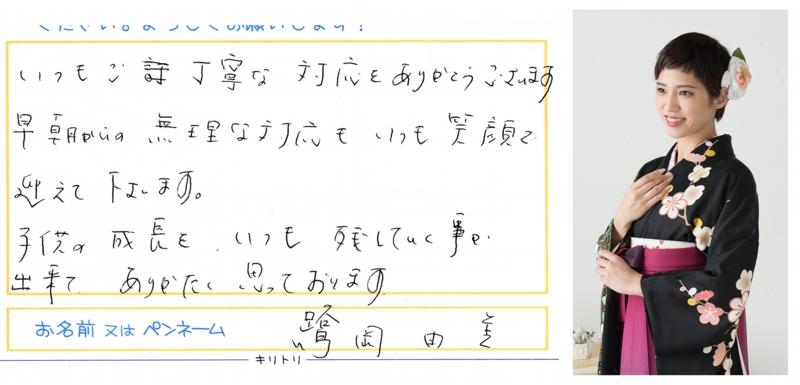 ください。よろしくお願いします！
いつもご 丁寧な 対応をありがとうございます
早朝からの 無理な対応も いつも 笑顔で
迎えて 下さいます。
子供の 成長を、いつも 残していく事が
出来て ありがたく 思っております。
お名前 又は ペンネーム 鷺岡 由美
キリトリ